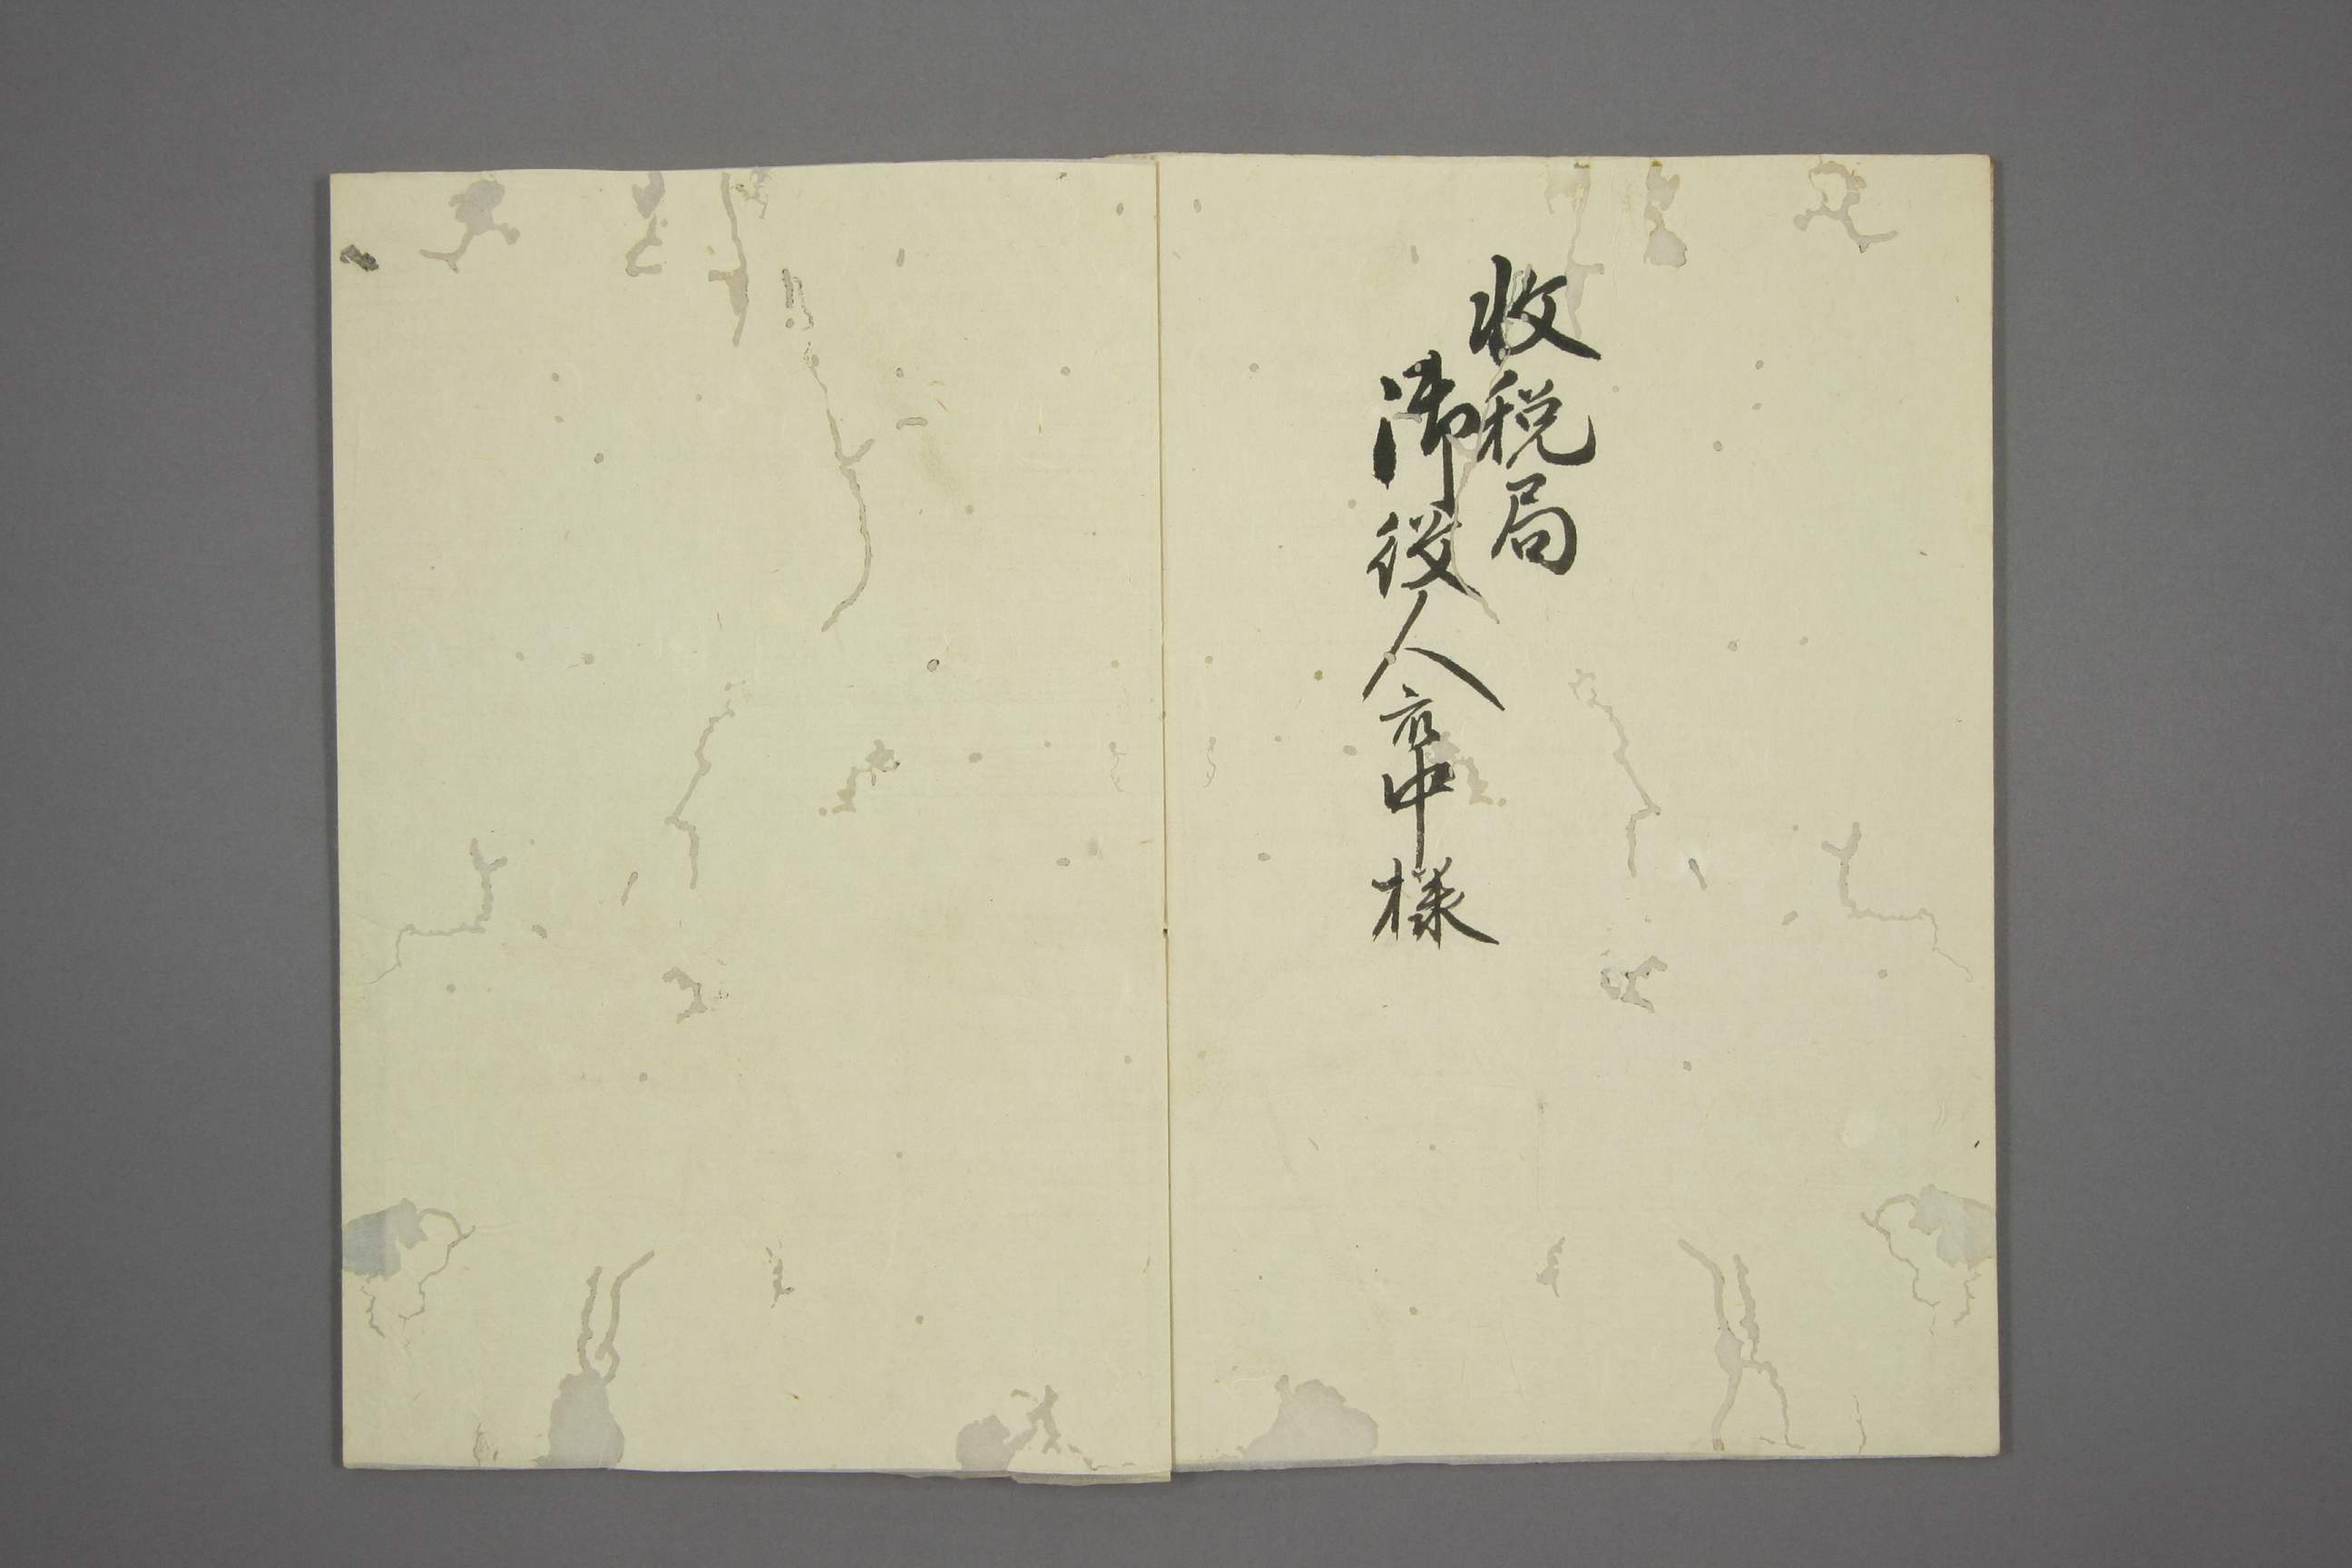 收税局
御役人衆中様